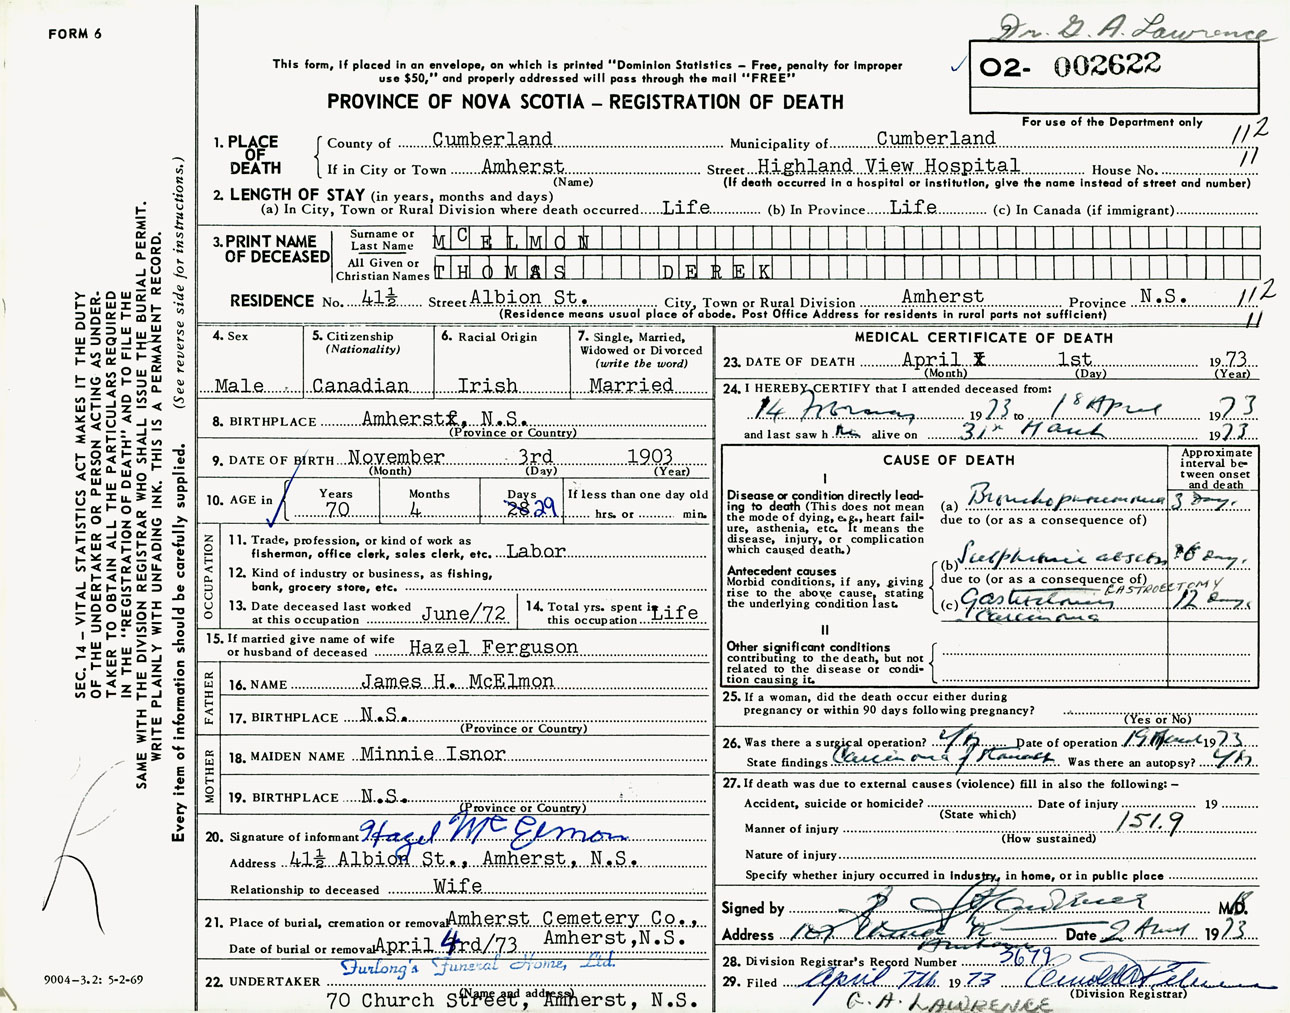 FORM 6
Dr. G. A. Lawrence
This form, if placed in an envelope, on which is printed "Dominion Statistics – Free, penalty for improper
use $50," and properly addressed will pass through the mail "FREE"
02- 002622
PROVINCE OF NOVA SCOTIA – REGISTRATION OF DEATH
For use of the Department only
1. PLACE OF DEATH
County of Cumberland Municipality of Cumberland 112
If in City or Town Amherst Street Highland View Hospital House No. 11
(Name) (If death occurred in a hospital or institution, give the name instead of street and number)
2. LENGTH OF STAY (in years, months and days)
(a) In City, Town or Rural Division where death occurred Life (b) In Province Life (c) In Canada (if immigrant)
3. PRINT NAME OF DECEASED
Surname or Last Name MCELMON
All Given or Christian Names THOMAS DEREK
RESIDENCE No. 41½ Street Albion St. City, Town or Rural Division Amherst Province N.S. 112
(Residence means usual place of abode. Post Office Address for residents in rural parts not sufficient) 11
4. Sex
Male
5. Citizenship (Nationality)
Canadian
6. Racial Origin
Irish
7. Single, Married, Widowed or Divorced (write the word)
Married
8. BIRTHPLACE Amherst, N.S.
(Province or Country)
9. DATE OF BIRTH November 3rd 1903
(Month) (Day) (Year)
10. AGE in Years 70 Months 4 Days 28 29 If less than one day old
hrs. or min.
OCCUPATION
11. Trade, profession, or kind of work as
fisherman, office clerk, sales clerk, etc. Labor
12. Kind of industry or business, as fishing,
bank, grocery store, etc.
13. Date deceased last worked
at this occupation June/72
14. Total yrs. spent in
this occupation Life
15. If married give name of wife
or husband of deceased Hazel Ferguson
FATHER
16. NAME James H. McElmon
17. BIRTHPLACE N.S.
(Province or Country)
MOTHER
18. MAIDEN NAME Minnie Isnor
19. BIRTHPLACE N.S.
(Province or Country)
20. Signature of informant Hazel McElmon
Address 41½ Albion St., Amherst, N.S.
Relationship to deceased Wife
21. Place of burial, cremation or removal Amherst Cemetery Co.,
Date of burial or removal April 4rd/73 Amherst, N.S.
Furlong's Funeral Home, Ltd.
22. UNDERTAKER
(Name and address)
70 Church Street, Amherst, N.S.
MEDICAL CERTIFICATE OF DEATH
23. DATE OF DEATH April 1st 1973
(Month) (Day) (Year)
24. I HEREBY CERTIFY that I attended deceased from:
14 1973 to 1st April 1973
and last saw him alive on 31st March 1973
CAUSE OF DEATH
Approximate interval between onset and death
I
Disease or condition directly leading to death (This does not mean
the mode of dying, e.g., heart failure, asthenia, etc. It means the
disease, injury, or complication
which caused death.)
(a) Bronchopneumonia 3 Days.
due to (or as a consequence of)
Antecedent causes
Morbid conditions, if any, giving
rise to the above cause, stating
the underlying condition last.
(b) Subphrenic abscess Days.
due to (or as a consequence of)
GASTRECTOMY
(c) 12 Days.
Carcinoma
II
Other significant conditions
contributing to the death, but not
related to the disease or condition causing it.
25. If a woman, did the death occur either during
pregnancy or within 90 days following pregnancy?
(Yes or No)
26. Was there a surgical operation? Yes Date of operation 19 March 1973
State findings Carcinoma of Stomach Was there an autopsy? Yes.
27. If death was due to external causes (violence) fill in also the following: –
Accident, suicide or homicide? Date of injury 19
(State which)
Manner of injury 151.9
(How sustained)
Nature of injury
Specify whether injury occurred in industry, in home, or in public place
Signed by M.D.
Address Amherst Date 2 April 1973
28. Division Registrar's Record Number 3679
29. Filed April 7th 1973
(Division Registrar)
G. A. LAWRENCE
SEC. 14 – VITAL STATISTICS ACT MAKES IT THE DUTY
OF THE UNDERTAKER OR PERSON ACTING AS UNDERTAKER TO OBTAIN ALL THE PARTICULARS REQUIRED
IN THE "REGISTRATION OF DEATH" AND TO FILE THE
SAME WITH THE DIVISION REGISTRAR WHO SHALL ISSUE THE BURIAL PERMIT.
WRITE PLAINLY WITH UNFADING INK. THIS IS A PERMANENT RECORD.
Every item of information should be carefully supplied. (See reverse side for instructions.)
9004–3.2: 5-2-69